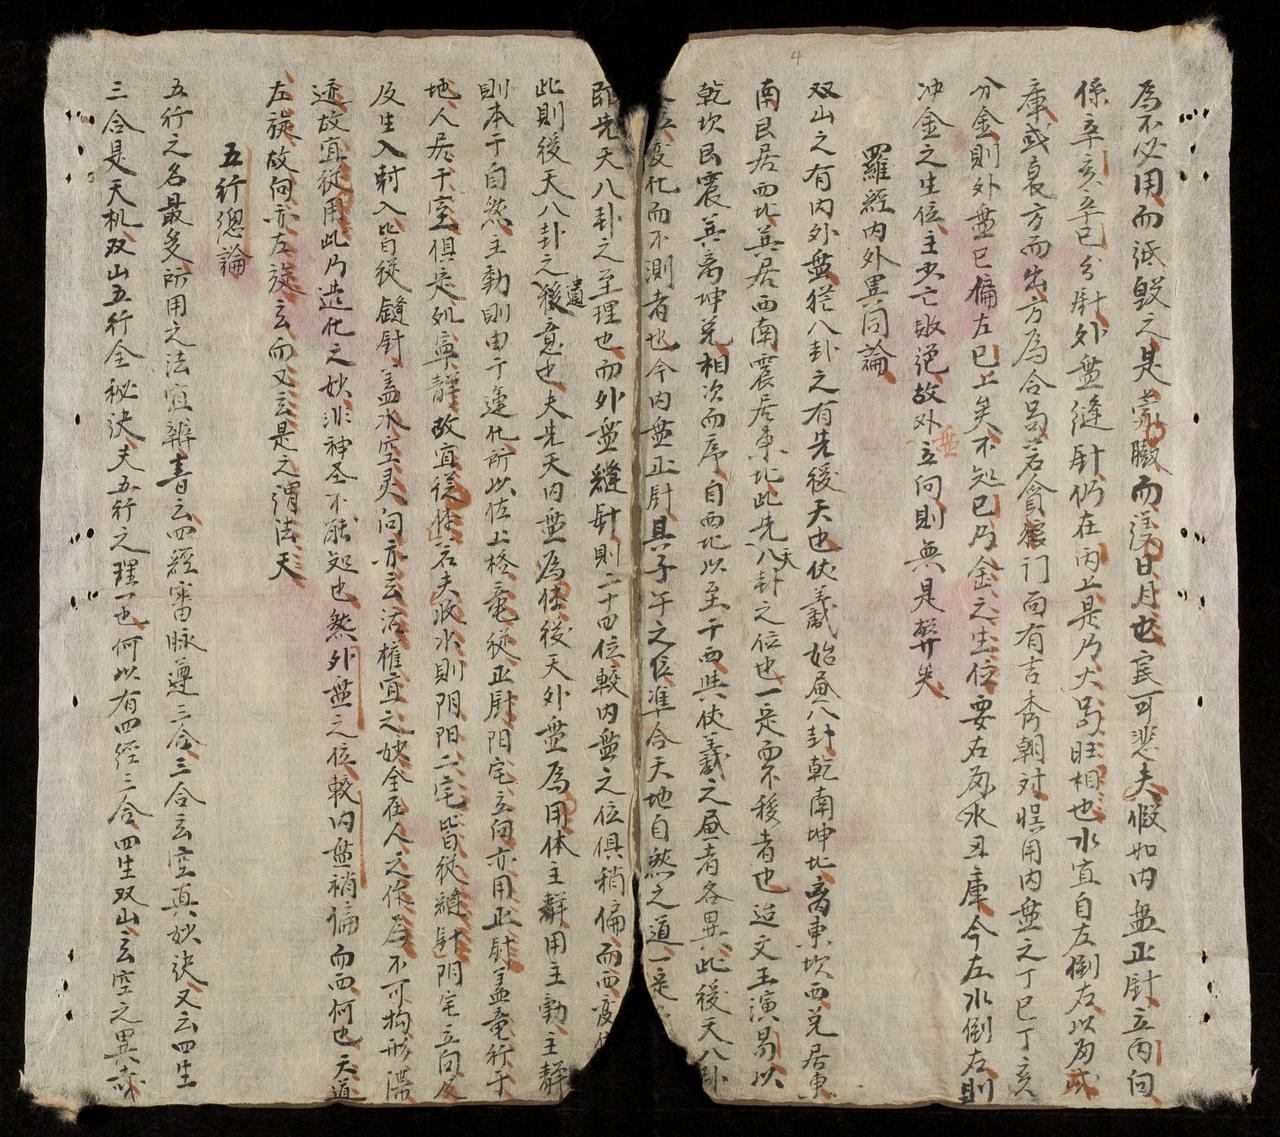 為不必用而詆毀之是蒙瞍而議日月也寔可悲夫假如內盘正針立丙向
係辛亥辛巳分針外盘縫針仍在丙上是乃大局旺相也水宜自左倒右以為或
庫或衰方而出方為合局若貪狼门而有吉秀朝对悞用內盘之丁巳丁亥
分金則外盘已偏左巳上矣不知巳乃金之生位要右為水丑庫今左水倒右則
冲金之生位主少亡敗絕故外盘立向則無是弊矣
羅經內外盘同論
双山之有內外盘猶八卦之有先後天也伏羲始画八卦乾南坤北离東坎西兑居東
南艮居西北巽居西南震居東北此先天八卦之位也一定而不移者也迨文王演易以
乾坎艮震巽离坤兑相次而序自西北以至于西與伏羲之画者各異此後天八卦
变化而不測者也今內盘正針具子午之位準合天地自然之道一定
即先天八卦之至理也而外盘縫針則二十四位較內盘之位俱稍偏而西变
此則後天八卦之遺意也夫先天內盘為体後天外盘為用体主靜用主動主靜
則本于自然主動則由于運化所以佐上格竜從正針阳宅立向亦用正針盖竜行于
地人居于室俱是處寧靜故宜從体若夫收水則阴阳二宅皆從縫針阴宅立向及
及生入剋入皆從縫針盖水空灵向亦云活權宜之妙全在人之作為不可拘形滞
迹故宜從用此乃造化之妙非神圣不能知也然外盘之位較內盘稍偏而西何也天道
左旋故向亦左旋云而又云是之謂法天
五行總論
五行之名最多所用之法宜辨書云四經審脉遵三合三合玄空真妙訣又云四生
三合是天机双山五行全秘訣夫五行之理一也何以有四經三合四生双山玄空之異哉